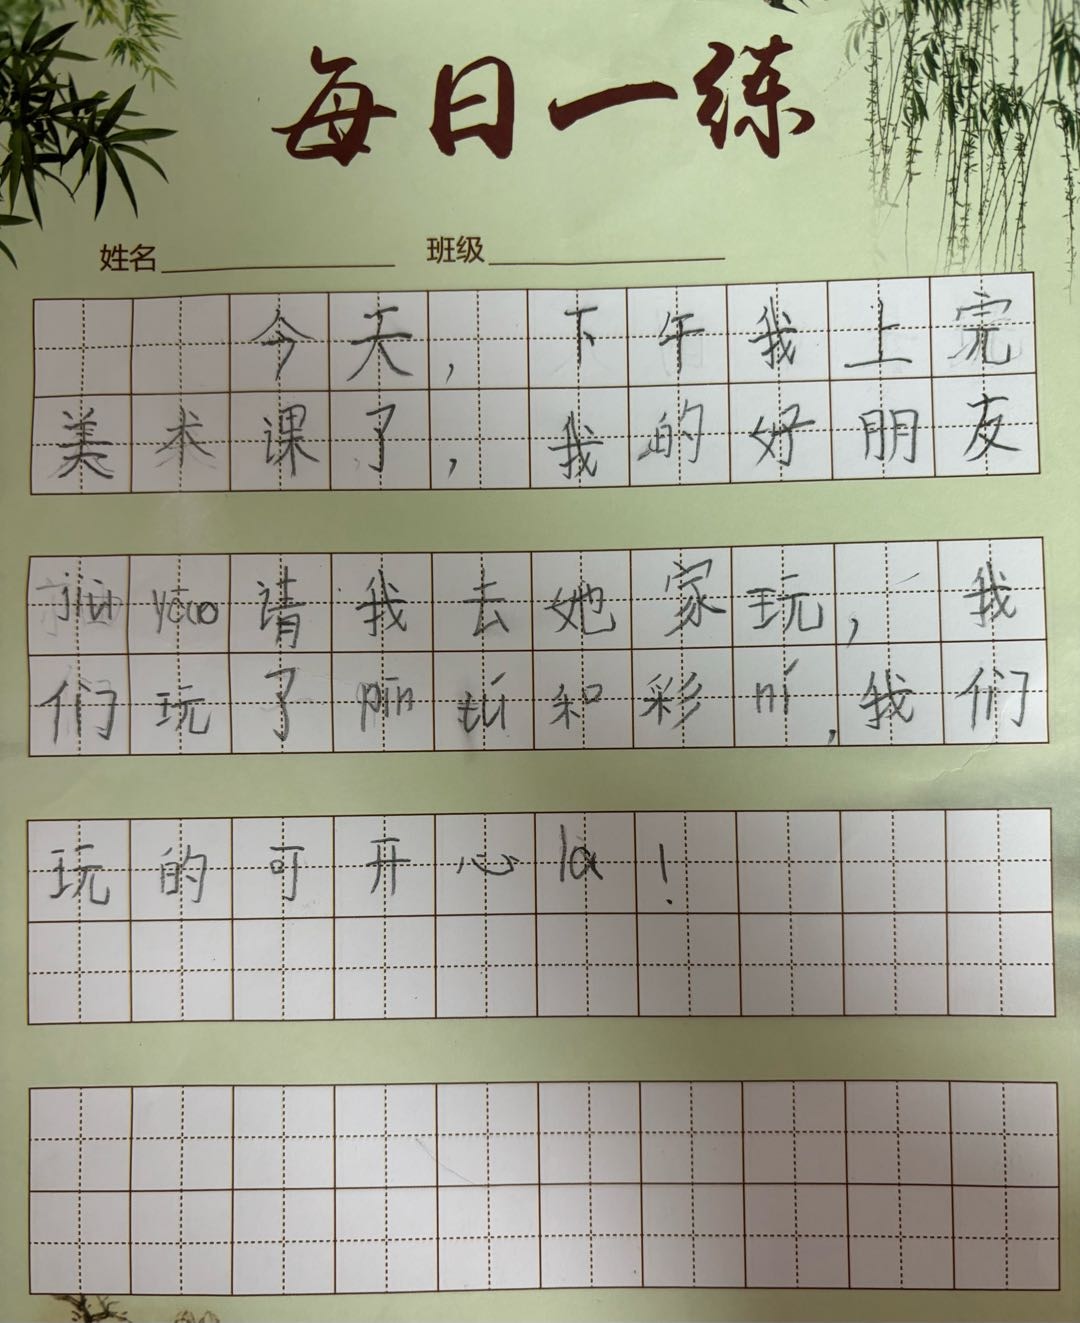 每日一练
姓名 班级
今天，下午我上完
美术课了，我的好朋友
jiù yāo请我去她家玩，我
们玩了pīn tú和彩ní，我们
玩的可开心la！